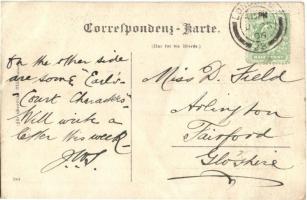 Correspondenz-Karte.
(Nur für die Adresse.)
On the other side
are some "Earl's
Court Characters"
Will write a
letter this week
Miss D. Field
Arlington
Fairford
Glo'shire